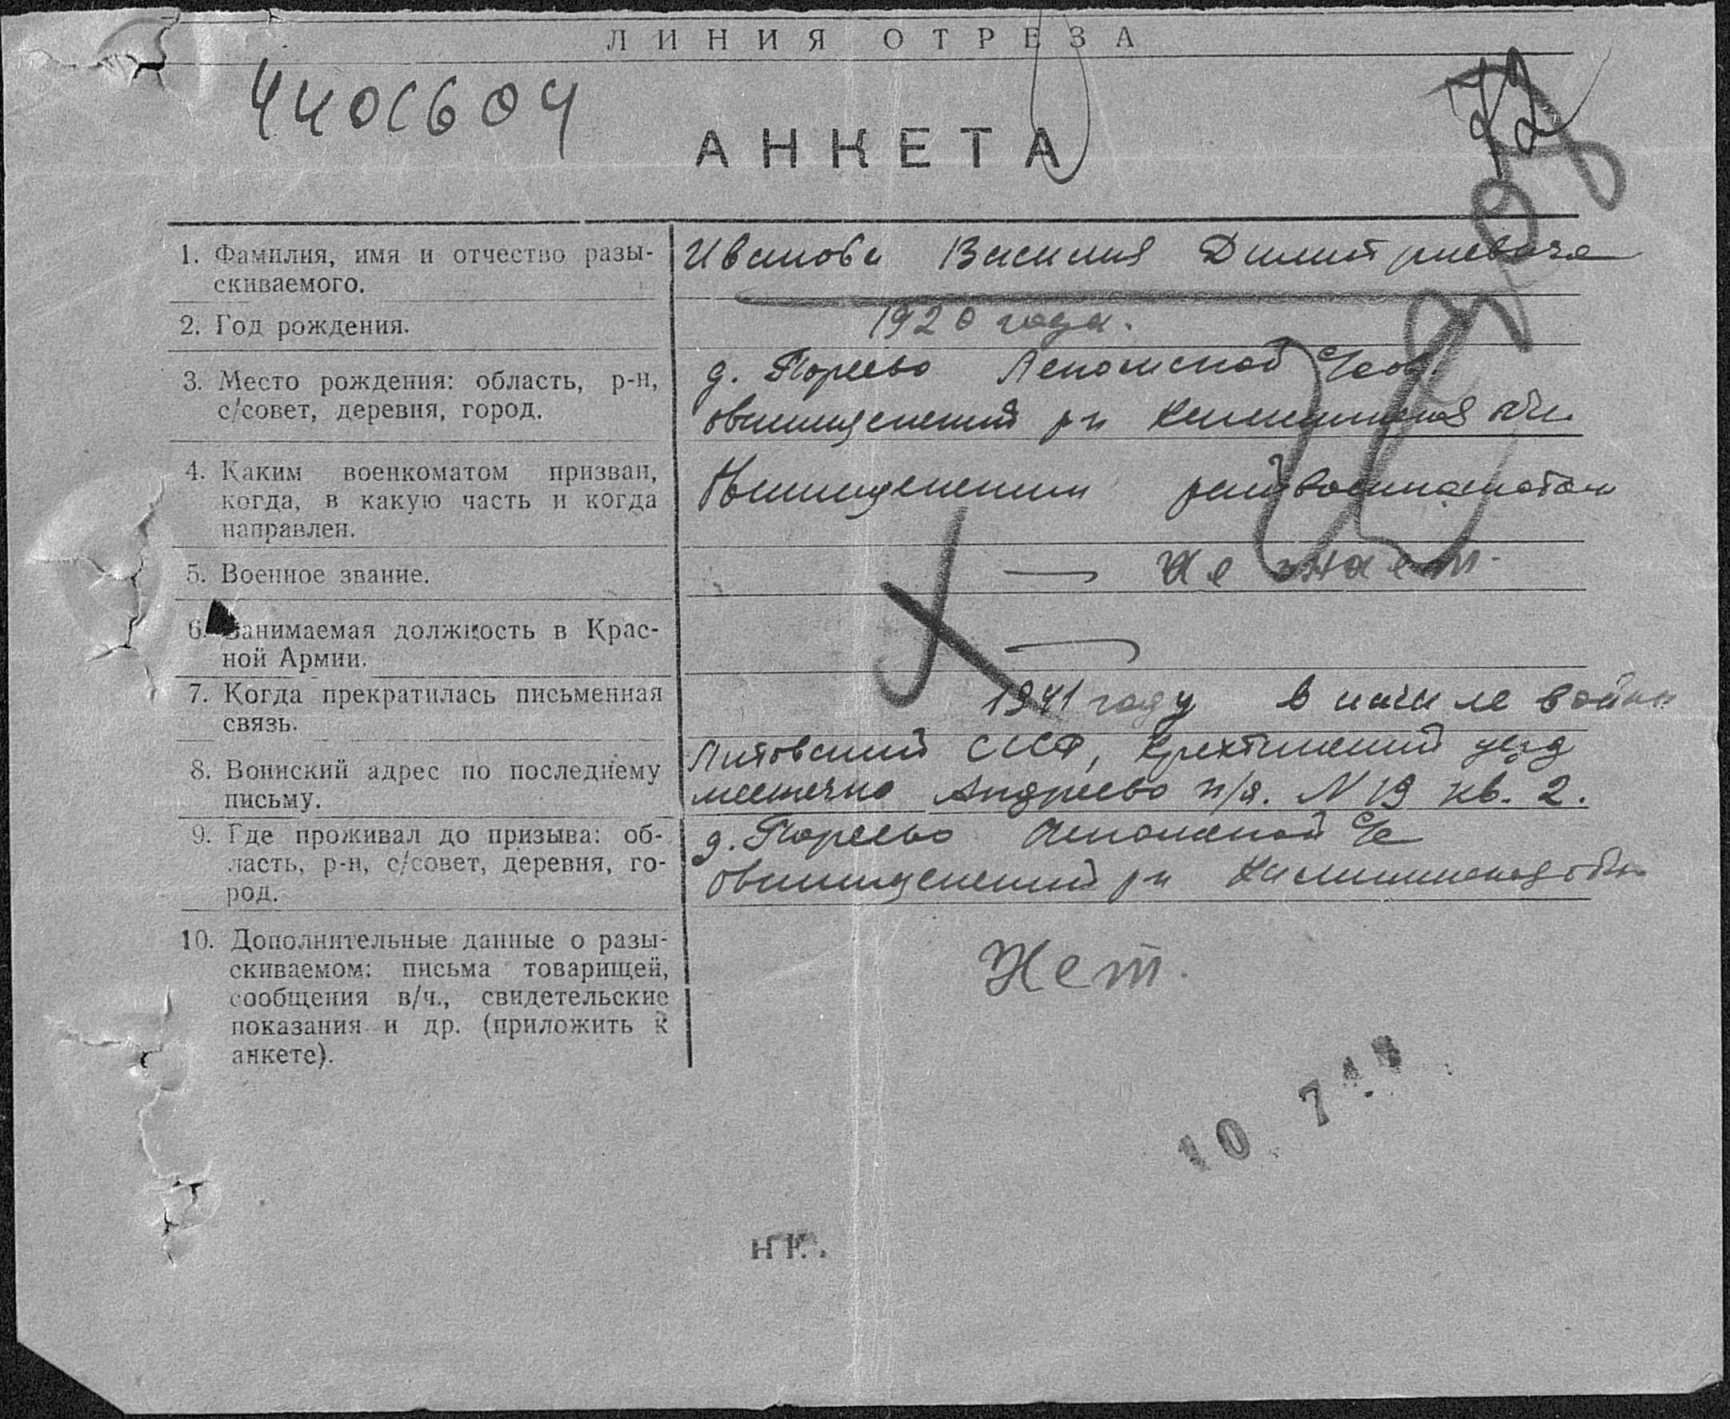 ЛИНИЯ ОТРЕЗА
72
АНКЕТА
1. Фамилия, имя и отчество разы-
скиваемого.
Иванова Василия Димитриевича
2. Год рождения.
1920 года.
3. Место рождения: область, р-н,
с/совет, деревня, город.
д. Пореево
р-н
4. Каким военкоматом призван,
когда, в какую часть и когда
направлен.
райвоенкоматом
5. Военное звание.
— Не знает.
6. Занимаемая должность в Крас-
ной Армии.
—
7. Когда прекратилась письменная
связь.
1941 году в начале войны
8. Воинский адрес по последнему
письму.
Литовский ССР, уезд
местечко Андреево п/я. N 19 кв. 2.
9. Где проживал до призыва: об-
ласть, р-н, с/совет, деревня, го-
род.
д. Пореево с/с
р-н
10. Дополнительные данные о разы-
скиваемом: письма товарищей,
сообщения в/ч., свидетельские
показания и др. (приложить к
анкете).
Нет.
10 7
НК.